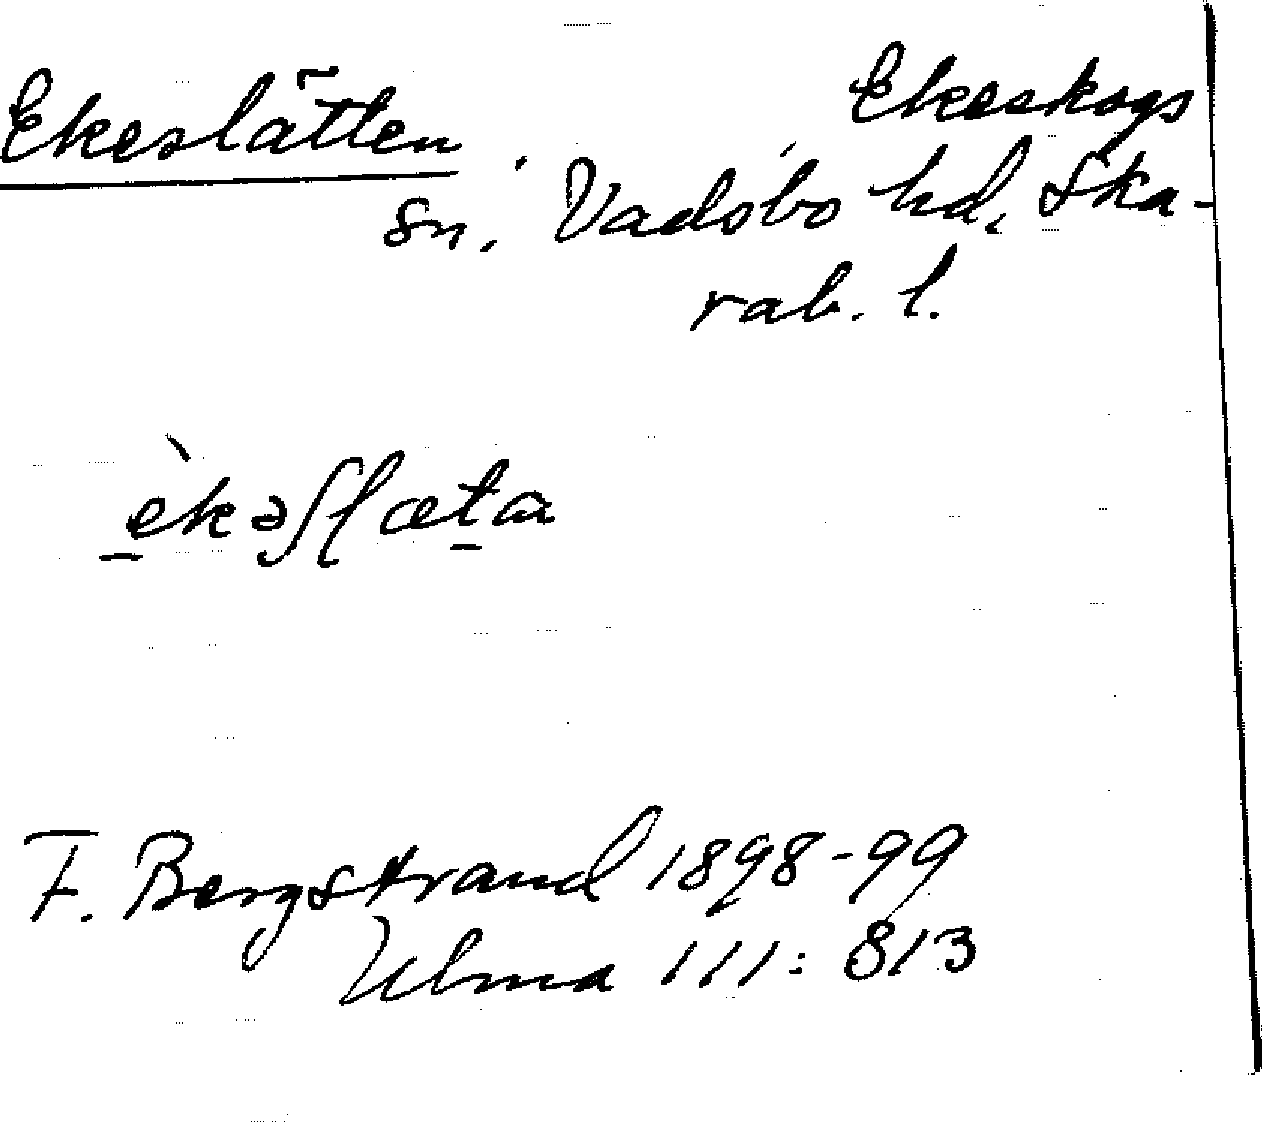 Ekeslätten Ekeskogs
sn. Vadsbo hd. Ska-
rab. l.
èkəʃlæta
F. Bergstrand 1898-99
Ulma 111:813